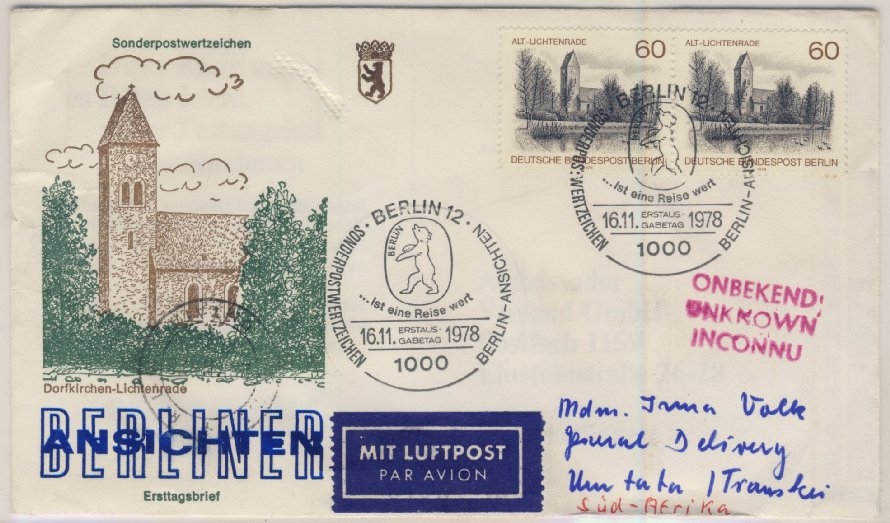 Sonderpostwertzeichen
ALT-LICHTENRADE 60
DEUTSCHE BUNDESPOST BERLIN
ALT-LICHTENRADE 60
DEUTSCHE BUNDESPOST BERLIN
BERLIN 12
SONDERPOSTWERTZEICHEN
BERLIN-ANSICHTEN
...ist eine Reise wert
16.11. ERSTAUS-GABETAG 1978
1000
BERLIN 12
BERLIN
SONDERPOSTWERTZEICHEN
BERLIN-ANSICHTEN
...ist eine Reise wert
16.11. ERSTAUS-GABETAG 1978
1000
ONBEKEND
UNKNOWN
INCONNU
Dorfkirchen-Lichtenrade
BERLINER
ANSICHTEN
Ersttagsbrief
MIT LUFTPOST
PAR AVION
Mdm. Irma Volk
General Delivery
Umtata / Transkei
Süd-Afrika